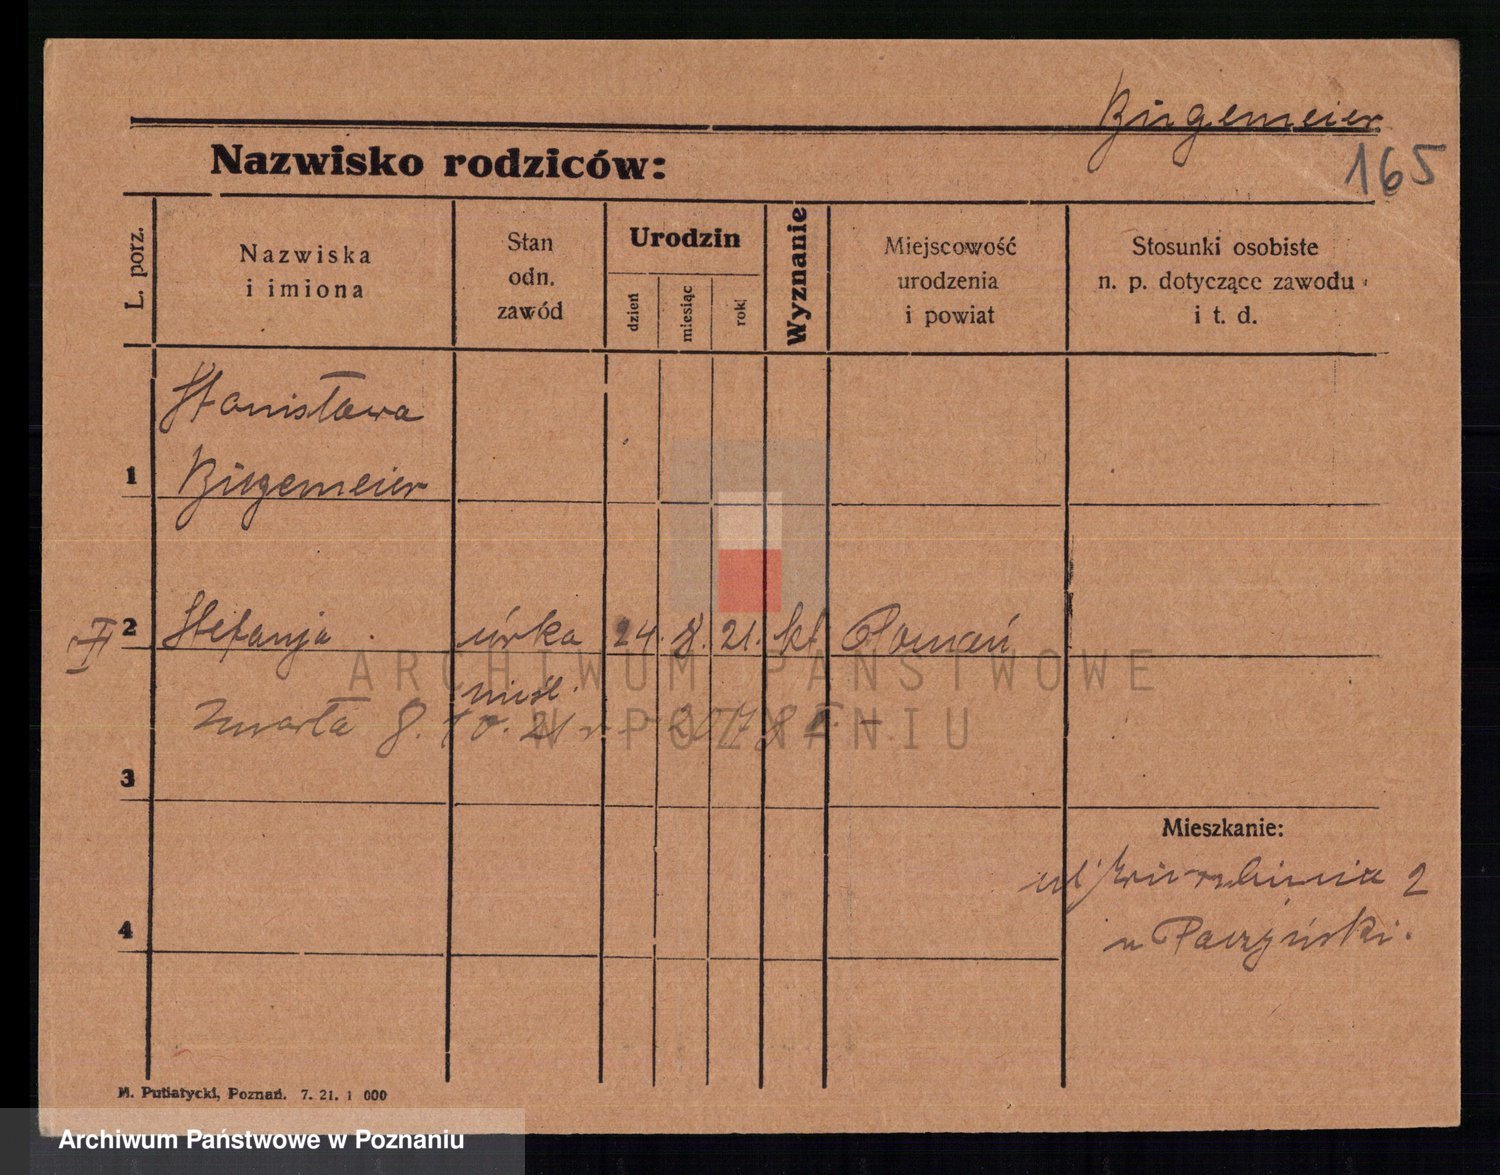 Birgemeier
165
Nazwisko rodziców:
L. porz.
Nazwiska
i imiona
Stan
odn.
zawód
Urodzin
dzień
miesiąc
rok
Wyznanie
Miejscowość
urodzenia
i powiat
Stosunki osobiste
n. p. dotyczące zawodu
i t. d.
Stanisława
1 Birgemeier
II 2 Stefanja córka 24. 8. 21. kt. Poznań
nieśl.
zmarła 8. 10. 21 r.
3
Mieszkanie:
ul. 2
u Paczyński.
4
M. Putiatycki, Poznań. 7. 21. 1 000
ARCHIWUM PAŃSTWOWE
W POZNANIU
Archiwum Państwowe w Poznaniu